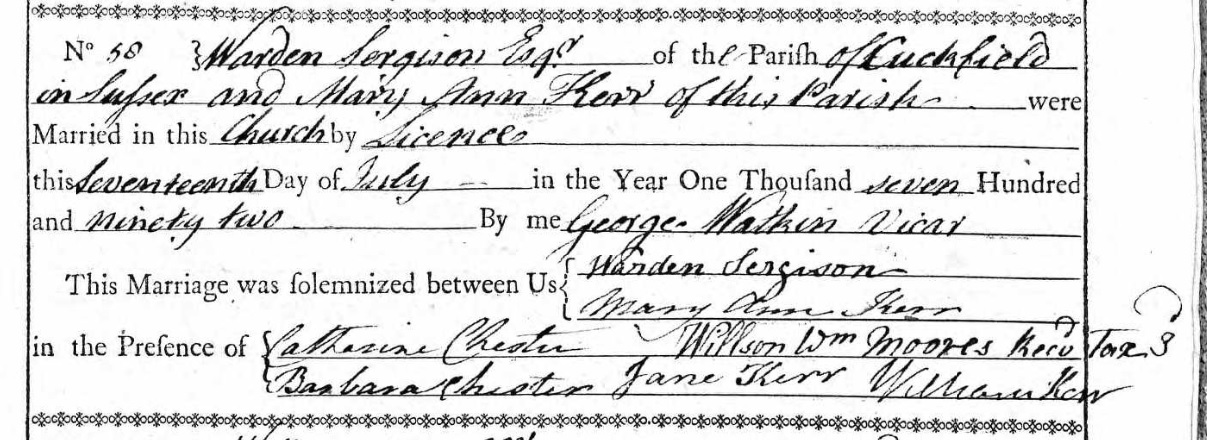 No 58 } Warden Sergison Esqr of the Pariſh of Cuckfield
in Sussex and Mary Ann Kerr of this Parish were
Married in this Church by Licence
this Seventeenth Day of July in the Year One Thouſand seven Hundred
and ninety two By me George Watkin Vicar
This Marriage was ſolemnized between Us { Warden Sergison
Mary Ann Kerr
in the Preſence of { Catharine Chester Willson Wm Moores Recd Tax 3
Barbara Chester Jane Kerr William Kerr